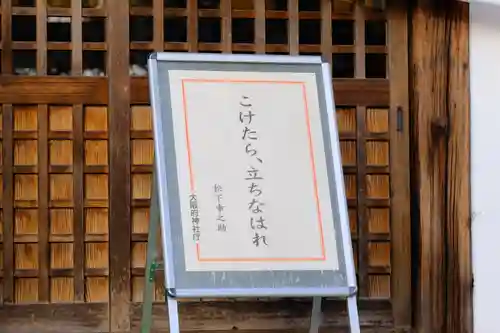 こけたら、立ちなはれ
松下幸之助
大阪府神社庁